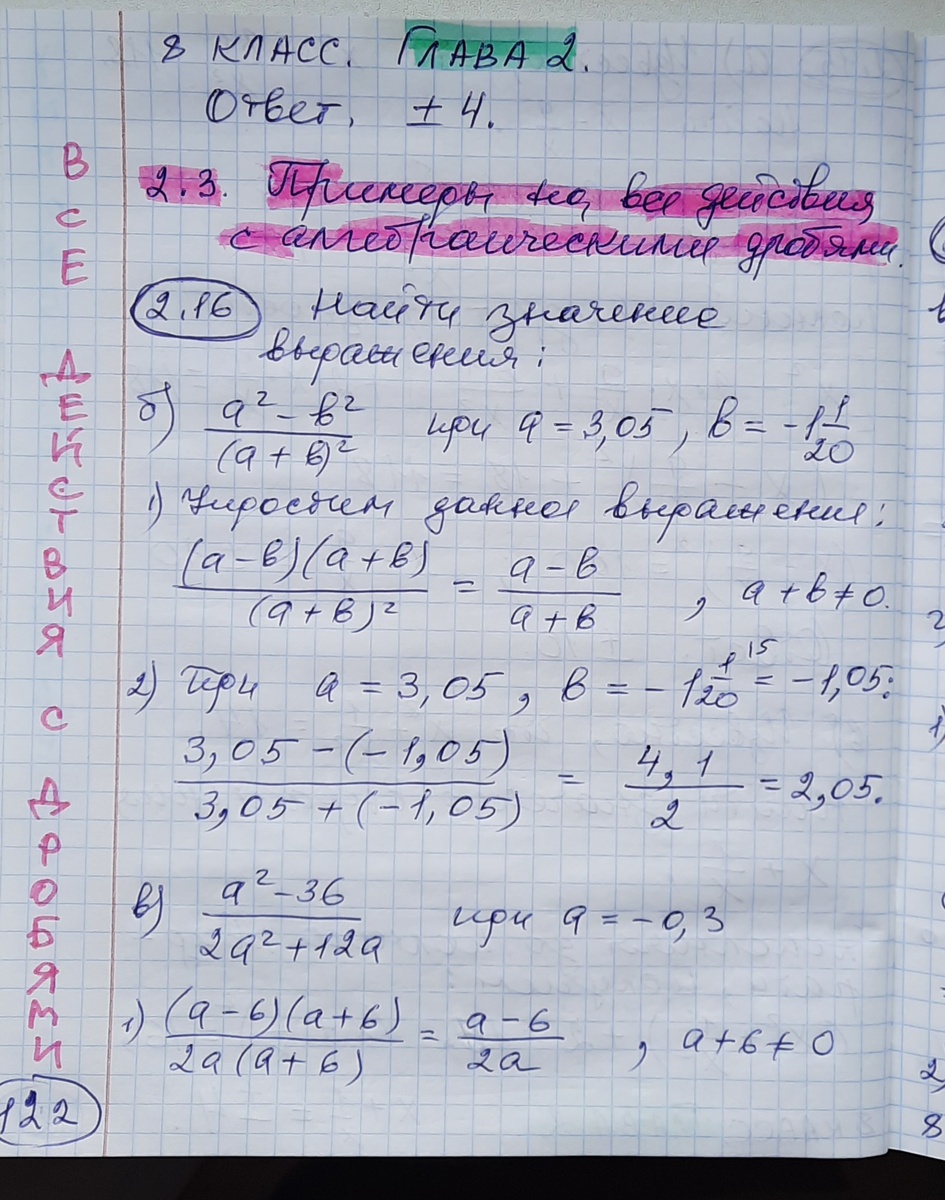 8 КЛАСС. ГЛАВА 2.
Ответ, ± 4.
2.3. Примеры на все действия
с алгебраическими дробями.
2.16 Найти значение
выражения:
б) (a² - b²)/(a + b)² при a = 3,05, b = -1 1/20
1) Упростим данное выражение:
((a - b)(a + b))/(a + b)² = (a - b)/(a + b) , a + b ≠ 0.
2) При a = 3,05, b = -1 1/20 ¹⁵ = -1,05:
(3,05 - (-1,05))/(3,05 + (-1,05)) = 4,1/2 = 2,05.
в) (a² - 36)/(2a² + 12a) при a = -0,3
1) ((a - 6)(a + 6))/(2a(a + 6)) = (a - 6)/(2a) , a + 6 ≠ 0
ВСЕ ДЕЙСТВИЯ С ДРОБЯМИ
122